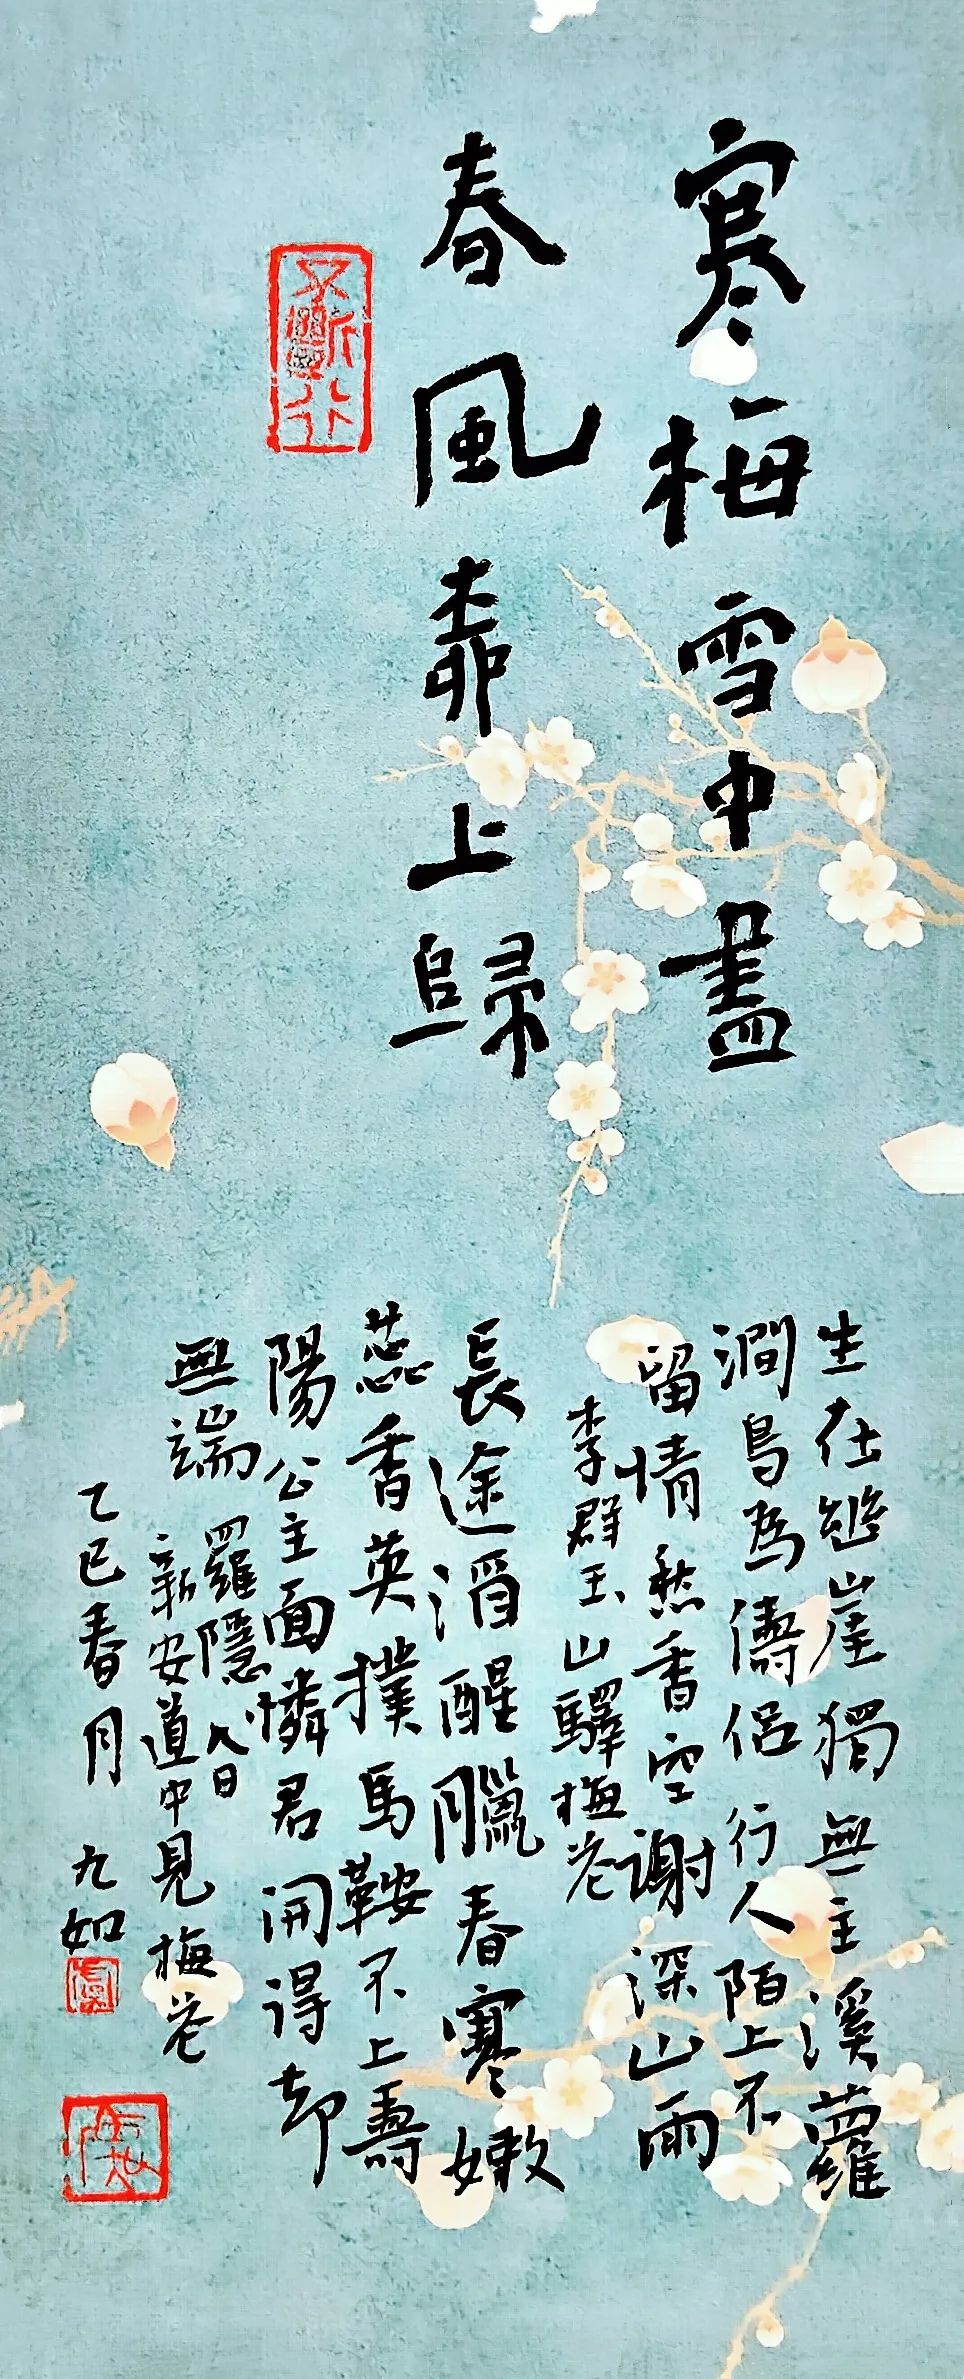 寒梅雪中盡
春風柳上歸
生在幽崖獨無主溪蘿
澗鳥為儔侶行人陌上不
留情愁香空謝深山雨
李群玉山驛梅花
長途酒醒臘春寒嫩
蕊香英撲馬鞍不上壽
陽公主面憐君開得却
無端
羅隱人日
新安道中見梅花
乙巳春月 九如